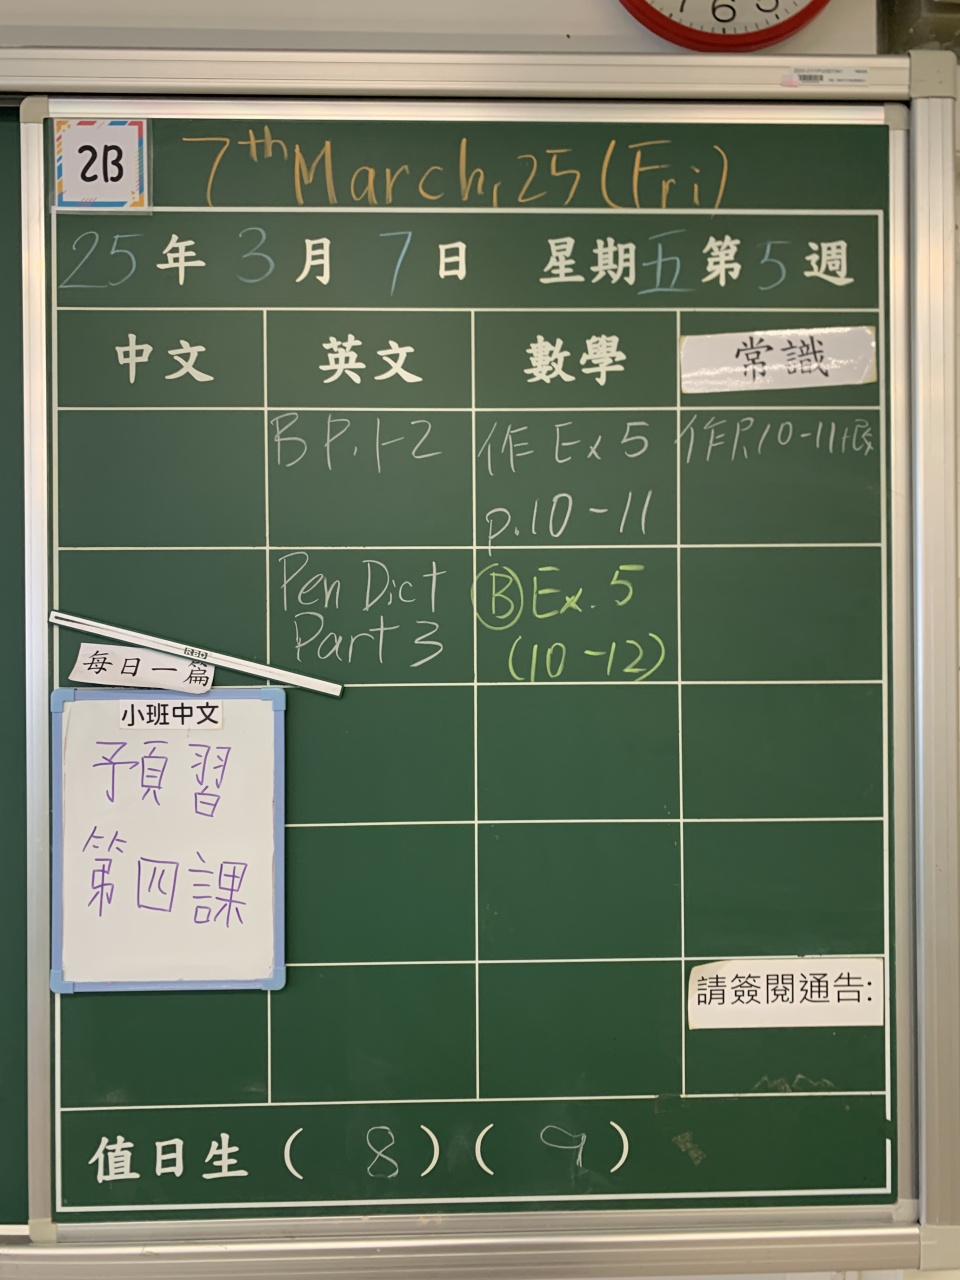 6
2B
7th March, 25 (Fri)
25年 3月 7日 星期五 第5週
中文 英文 數學 常識
B P.1-2
作 Ex 5
p.10-11
作P.10-11
Pen Dict
Part 3
Ⓑ Ex. 5
(10-12)
每日一篇
小班中文
預習
第四課
請簽閱通告:
值日生 ( 8 ) ( 9 )